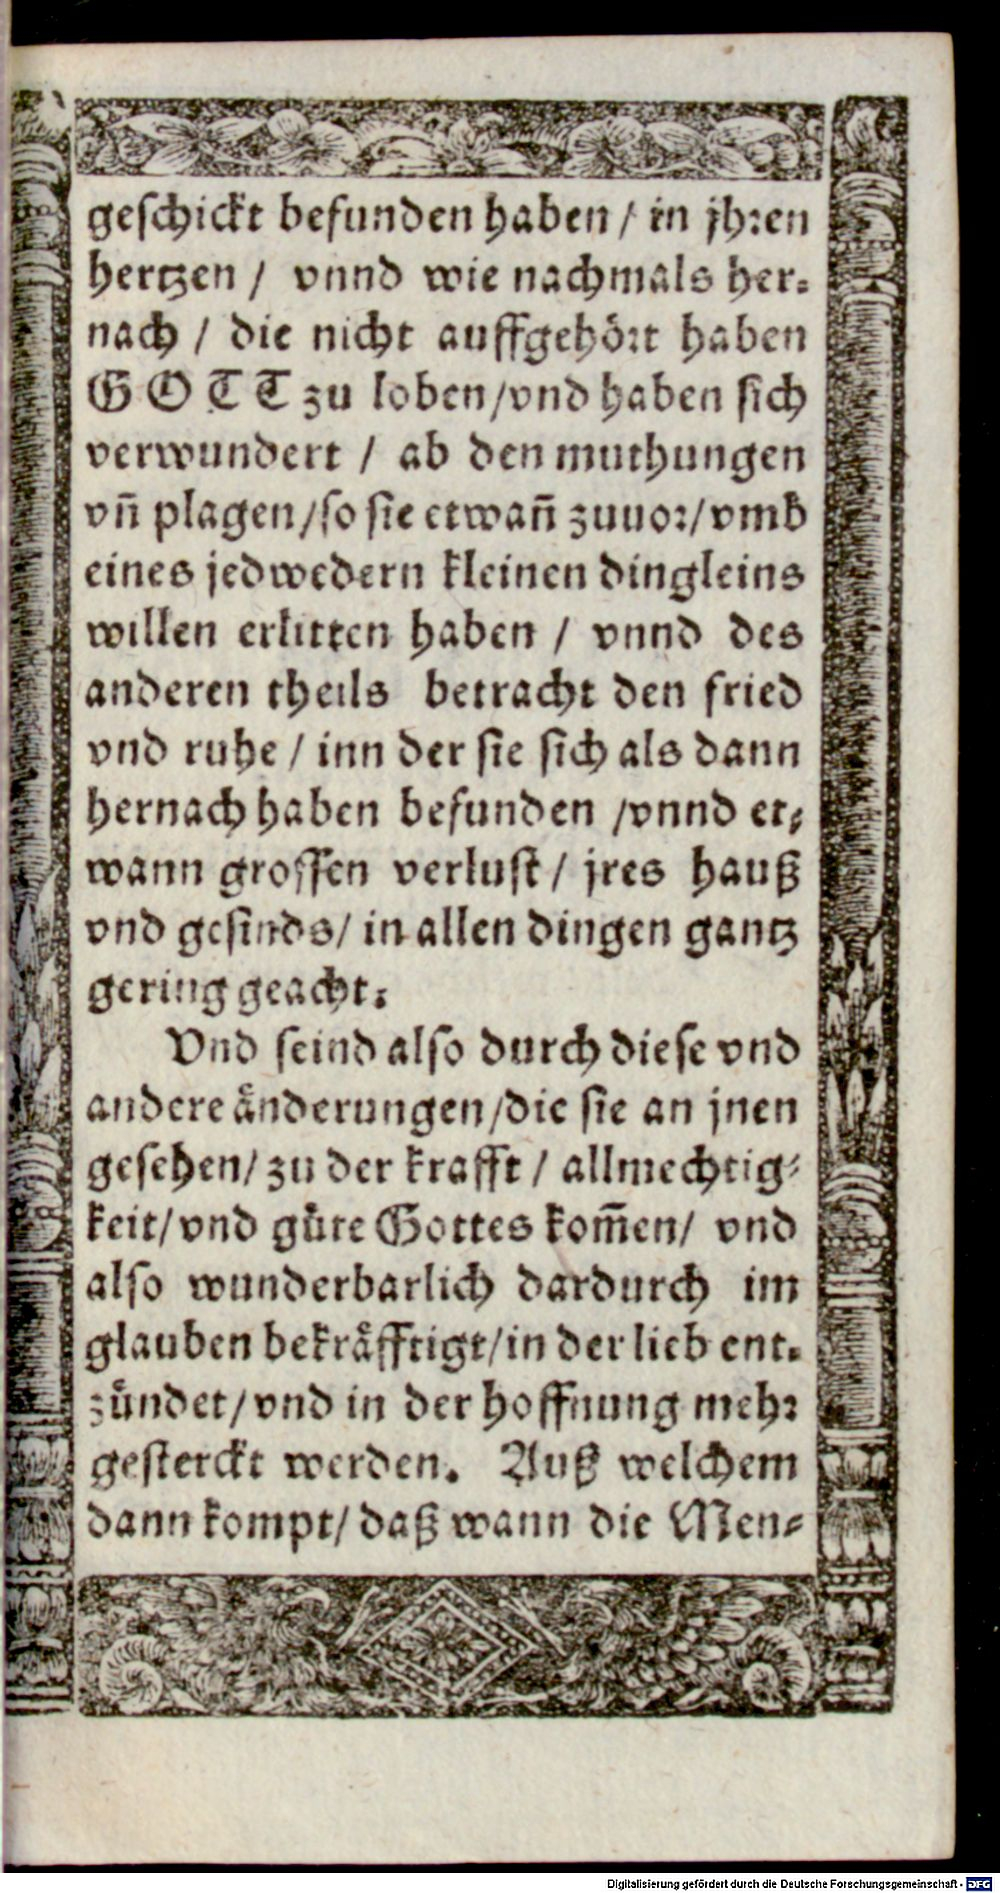 geschickt befunden haben / in jhren
hertzen / vnnd wie nachmals her-
nach / die nicht auffgehört haben
GOTT zu loben / vnd haben sich
verwundert / ab den muthungen
vn̄ plagen / so sie etwan̄ zuuor / vmb
eines jedwedern kleinen dingleins
willen erlitten haben / vnnd des
anderen theils betracht den fried
vnd ruhe / inn der sie sich als dann
hernach haben befunden / vnnd et-
wann grossen verlust / jres hauß
vnd gesinds / in allen dingen gantz
gering geacht.
Vnd seind also durch diese vnd
andere aͤnderungen / die sie an jnen
gesehen / zu der krafft / allmechtig-
keit / vnd guͤte Gottes kom̄en / vnd
also wunderbarlich dardurch im
glauben bekraͤfftigt / in der lieb ent-
zuͤndet / vnd in der hoffnung mehr
gesterckt werden. Auß welchem
dann kompt / daß wann die Men-
Digitalisierung gefördert durch die Deutsche Forschungsgemeinschaft - DFG